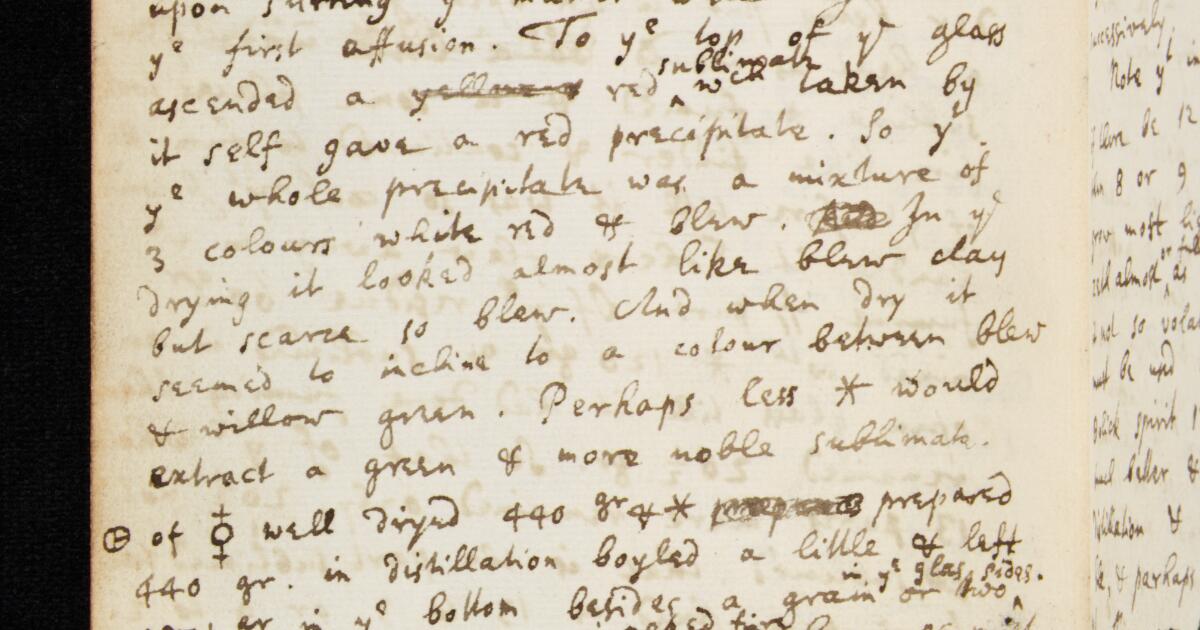 upon
yᵉ first affusion. To yᵉ top of yᵉ glass
ascended a red ^sublimate wᶜʰ taken by
it self gave a red precipitate. So yᵗ
yᵉ whole precipitate was a mixture of
3 colours white red & blew. In yᵉ
drying it looked almost like blew clay
but scarce so blew. And when dry it
seemed to incline to a colour between blew
& willow green. Perhaps less ✶ would
extract a green & more noble sublimate.
of well dryed 440 gr & ✶ prepared
440 gr. in distillation boyled a little & left
gr in yᵉ bottom besides a grain or two ^in yᵉ glass sides.
ccessively
Note yᵗ in
be 12
8 or 9
most
almost as
not so vola
must be
spirit
better &
tillation &
& perhaps